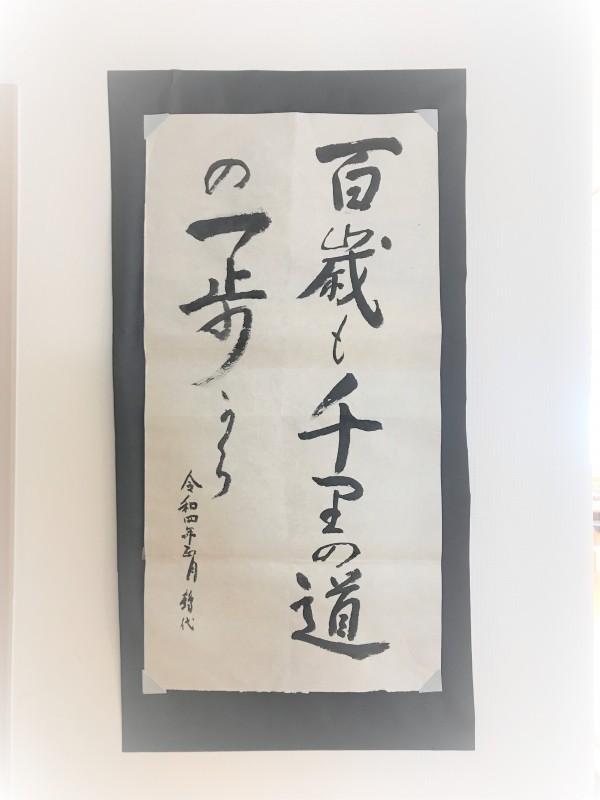 百歳も千里の道
の一歩から
令和四年正月 静代